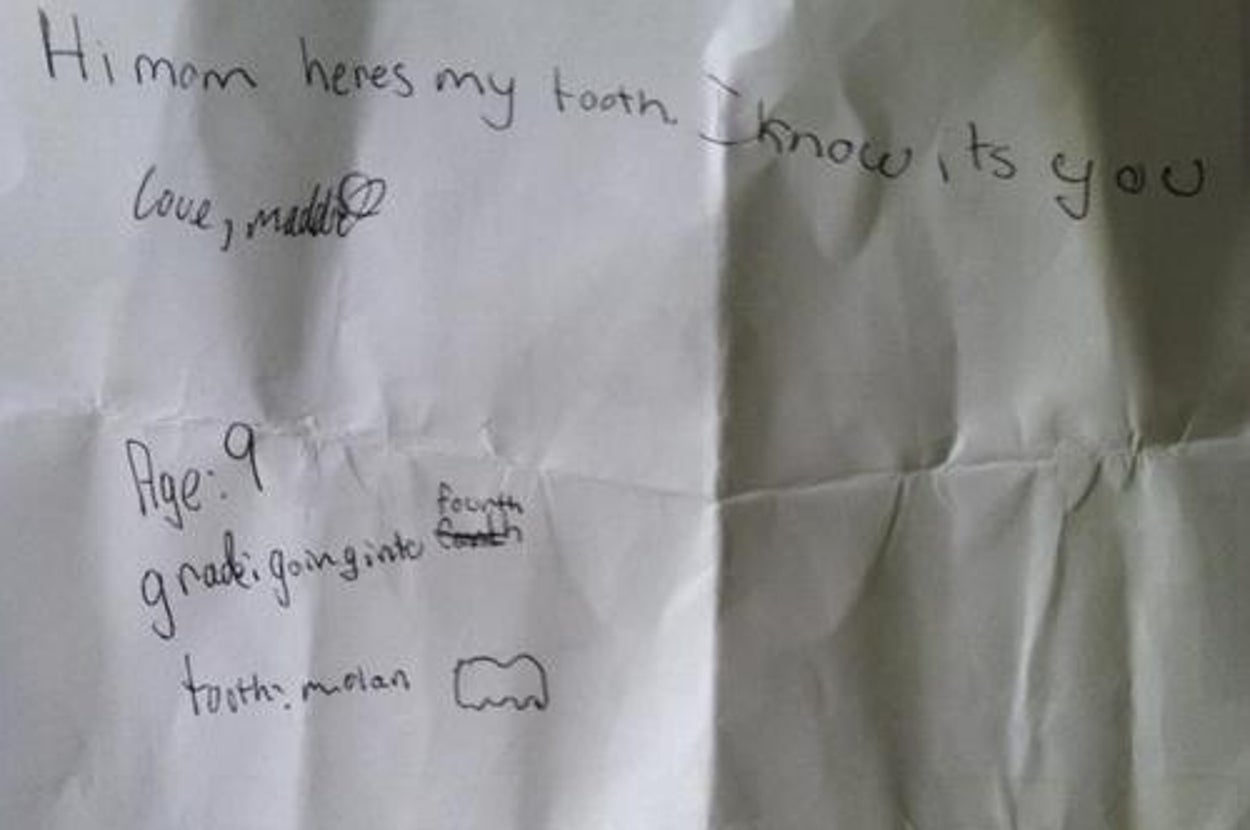 Hi mom heres my tooth I know its you
Love, maddi
Age: 9
grade: going into fourth
tooth: molar